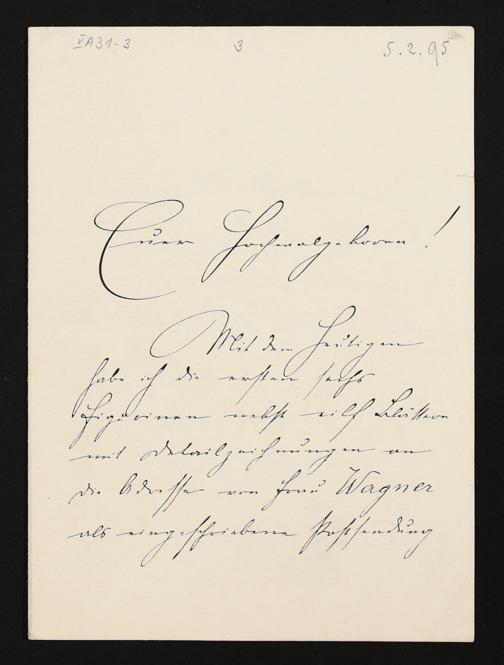 VA31-3
3
5.2.95
Euer Hochwolgeboren!
Mit dem Heutigen
habe ich die ersten sechs
Figurinen nebst eilf Blättern
mit Detailzeichnungen an
die Adresse von Frau Wagner
als eingeschriebene Postsendung